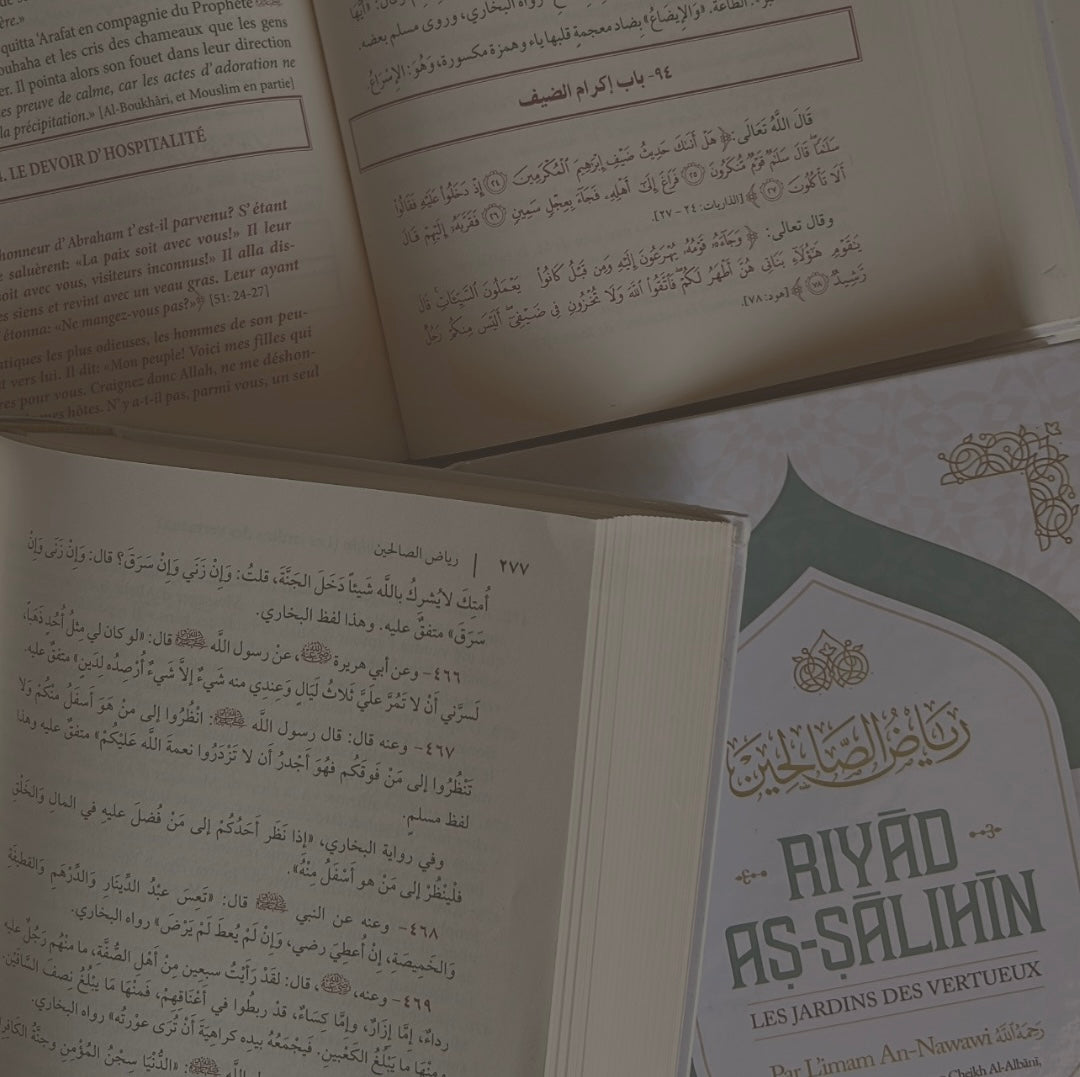 ère.»
quitta 'Arafat en compagnie du Prophète ﷺ
ouhaha et les cris des chameaux que les gens
er. Il pointa alors son fouet dans leur direction
es preuve de calme, car les actes d'adoration ne
la précipitation.» [Al-Boukhâri, et Mouslim en partie]
. LE DEVOIR D'HOSPITALITÉ
honneur d'Abraham t'est-il parvenu? S'étant
saluèrent: «La paix soit avec vous!» Il leur
oit avec vous, visiteurs inconnus!» Il alla dis-
es siens et revint avec un veau gras. Leur ayant
étonna: «Ne mangez-vous pas?»﴾ [51: 24-27]
atiques les plus odieuses, les hommes de son peu-
t vers lui. Il dit: «Mon peuple! Voici mes filles qui
res pour vous. Craignez donc Allah, ne me déshon-
mes hôtes. N'y a-t-il pas, parmi vous, un seul
الطاعة. «وَالإِيضَاعُ» بِضاد معجمةٍ قلبها ياء وهمزة مكسورة، وَهُوَ: الإِسْرَاعُ.
رواه البخاري، وروى مسلم بعضه.
٩٤- باب إكرام الضيف
قَالَ اللَّهُ تَعَالَى: ﴿ هَلْ أَتَىٰكَ حَدِيثُ ضَيْفِ إِبْرَٰهِيمَ ٱلْمُكْرَمِينَ ۝٢٤ إِذْ دَخَلُوا۟ عَلَيْهِ فَقَالُوا۟
سَلَٰمًا ۖ قَالَ سَلَٰمٌ قَوْمٌ مُّنكَرُونَ ۝٢٥ فَرَاغَ إِلَىٰٓ أَهْلِهِۦ فَجَآءَ بِعِجْلٍ سَمِينٍ ۝٢٦ فَقَرَّبَهُۥٓ إِلَيْهِمْ قَالَ
أَلَا تَأْكُلُونَ ۝٢٧ ﴾ [الذاريات: ٢٤ - ٢٧].
وقال تعالى: ﴿ وَجَآءَهُۥ قَوْمُهُۥ يُهْرَعُونَ إِلَيْهِ وَمِن قَبْلُ كَانُوا۟ يَعْمَلُونَ ٱلسَّيِّـَٔاتِ ۚ قَالَ
يَٰقَوْمِ هَٰٓؤُلَآءِ بَنَاتِى هُنَّ أَطْهَرُ لَكُمْ ۖ فَٱتَّقُوا۟ ٱللَّهَ وَلَا تُخْزُونِ فِى ضَيْفِىٓ ۖ أَلَيْسَ مِنكُمْ رَجُلٌ
رَّشِيدٌ ۝٧٨ ﴾ [هود: ٧٨].
٢٧٧ | رياض الصالحين
أُمتِكَ لايُشرِكُ باللَّه شَيئاً دَخَلَ الجَنَّةَ، قلتُ: وَإِنْ زَنَي وَإِنْ سَرَقَ؟ قال: وَإِنْ زَنَى وَإِنْ
سَرَقَ» متفقٌ عليه. وهذا لفظ البخاري.
٤٦٦- وعن أبي هريرة ﷺ، عنْ رسول اللَّه ﷺ قال: «لو كان لي مِثلُ أُحُدٍ ذَهَباً،
لَسرَّني أَنْ لا تَمُرَّ عَلَيَّ ثَلاثُ لَيَالٍ وَعِندِي منه شَيءٌ إلاَّ شَيءٌ أُرْصِدُه لِدَينٍ» متفقٌ عليه.
٤٦٧- وعنه قال: قال رسول اللَّه ﷺ: انْظُرُوا إلى منْ هَوَ أَسفَلُ منْكُمْ وَلا
تَنْظُرُوا إلى مَنْ فَوقَكُم فهُوَ أَجْدرُ أَن لا تَزْدَرُوا نعمةَ اللَّه عَلَيْكُمْ» متفقٌ عليه وهذا
لفظ مسلمٍ.
وفي رواية البخاري، «إِذا نَظَر أَحَدُكُمْ إلى مَنْ فُضلَ عليهِ في المالِ وَالخَلْقِ
فلْينْظُرْ إلى مَنْ هو أَسْفَلُ مِنْهُ».
٤٦٨- وعنه عن النبي ﷺ قال: «تَعِسَ عبْدُ الدِّينَارِ وَالدِّرْهَمِ وَالقطيفَةِ
وَالخَمِيصَةِ، إِنْ أُعطِيَ رضي، وَإِنْ لَمْ يُعطَ لَمْ يَرْضَ» رواه البخاري.
٤٦٩- وعنه، قال: لقَدْ رَأَيْتُ سبعِين مِنْ أَهْلِ الصُّفَّةِ، ما منْهُم رَجُلٌ عليه
رداءٌ، إِمَّا إِزَارٌ، وإِمَّا كِسَاءٌ، قدْ ربطُوا في أَعْنَاقِهِمْ، فَمنْهَا مَا يبْلُغُ نِصفَ السَّاقَيْنِ.
ومنْهَا ما يَبْلُغُ الكَعْبَينِ. فَيجْمَعُهُ بيدِه كراهِيَةَ أَنْ تُرَى عوْرتُه» رواه البخاري.
«الدُّنْيَا سِجْنُ المُؤْمِنِ وجنَّةُ الكَافِرِ
رياض الصالحين
RIYĀD
AṢ-ṢĀLIHĪN
LES JARDINS DES VERTUEUX
Par L'imam An-Nawawi رَحِمَهُ ٱللَّهُ
Cheikh Al-Albānī,